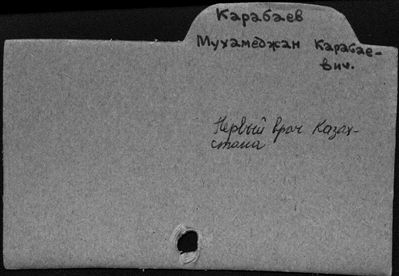 Карабаев
Мухамеджан Карабае-
вич.
Первый врач Казах-
стана